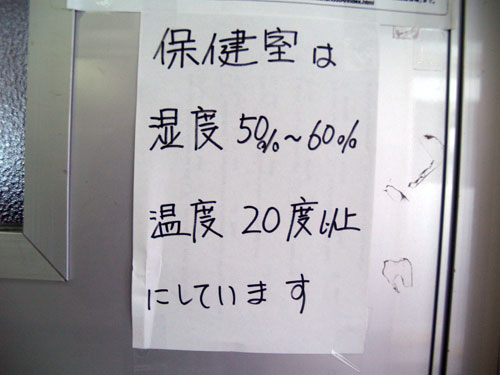 保健室は
湿度 50%~60%
温度 20度以上
にしています